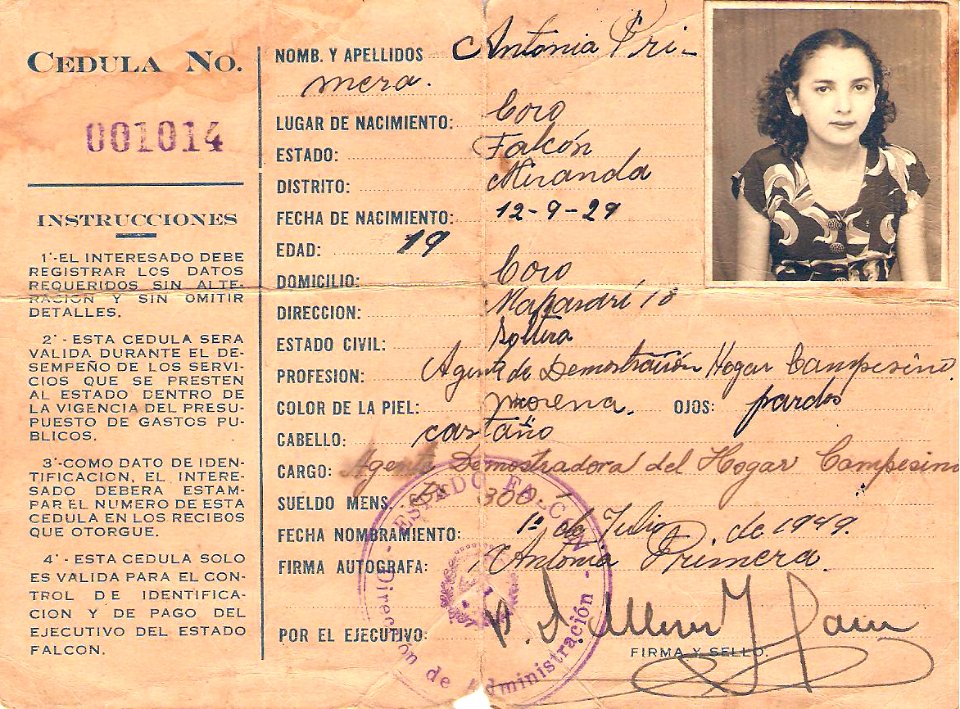 CEDULA No.
001014
INSTRUCCIONES
1°-EL INTERESADO DEBE
REGISTRAR LOS DATOS
REQUERIDOS SIN ALTE-
RACION Y SIN OMITIR
DETALLES.
2° - ESTA CEDULA SERA
VALIDA DURANTE EL DE-
SEMPEÑO DE LOS SERVI-
CIOS QUE SE PRESTEN
AL ESTADO DENTRO DE
LA VIGENCIA DEL PRESU-
PUESTO DE GASTOS PU-
BLICOS.
3°-COMO DATO DE IDEN-
TIFICACION, EL INTERE-
SADO DEBERA ESTAM-
PAR EL NUMERO DE ESTA
CEDULA EN LOS RECIBOS
QUE OTORGUE.
4° - ESTA CEDULA SOLO
ES VALIDA PARA EL CON-
TROL DE IDENTIFICA-
CION Y DE PAGO DEL
EJECUTIVO DEL ESTADO
FALCON.
NOMB. Y APELLIDOS Antonia Pri-
mera.
LUGAR DE NACIMIENTO: Coro
ESTADO: Falcón
DISTRITO: Miranda
FECHA DE NACIMIENTO: 12-9-29
EDAD: 19
DOMICILIO: Coro
DIRECCION: 18
ESTADO CIVIL: Soltera
PROFESION: Agente de Demostración Hogar Campesino.
COLOR DE LA PIEL: morena. OJOS: pardos
CABELLO: castaño
CARGO: Agente Demostradora del Hogar Campesino
SUELDO MENS. 300.
FECHA NOMBRAMIENTO: 1° de Julio de 1949.
FIRMA AUTOGRAFA: Antonia Primera.
POR EL EJECUTIVO:
FIRMA Y SELLO.
ESTADO FALCON
Dirección de Administración